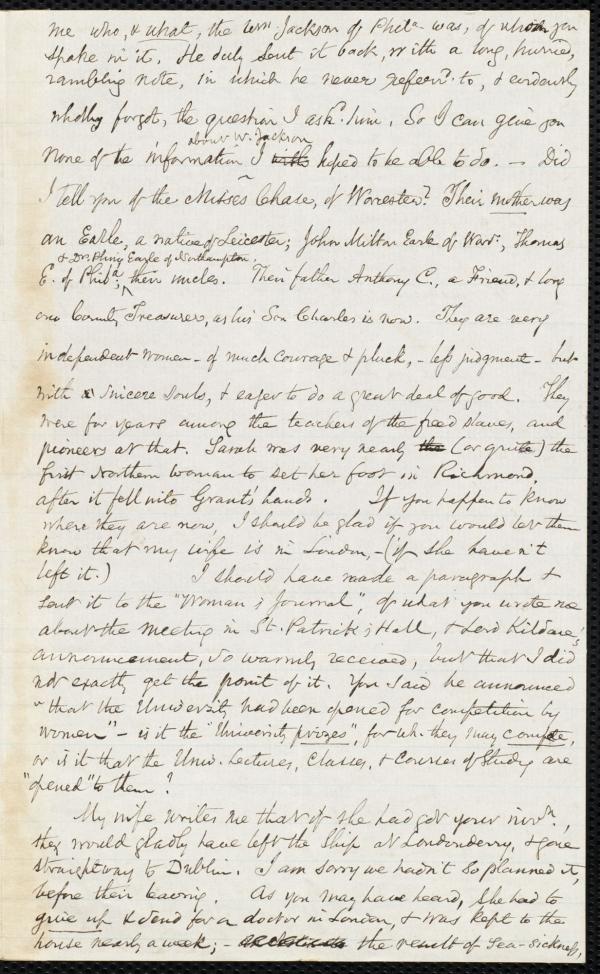 me who, & what, the Wm. Jackson of Phila. was, of whom you
spoke in it. He duly sent it back, with a long, hurried,
rambling note, in which he never referrd. to, & evidently
wholly forgot, the question I askd. him. So I can give you
about W. Jackson
none of the information I hoped to be able to do. — Did
I tell you of the Misses Chase, of Worcester? Their mother was
an Earle, a native of Leicester; John Milton Earle of Worr., Thomas
& Dr. Pliny Earle of Northampton,
E. of Phila.; their uncles. Their father Anthony C., a Friend, & long
our County Treasurer, as his Son Charles is now. They are very
independent women – of much courage & pluck, – less judgment – but
with sincere souls, & eager to do a great deal of good. They
were for years among the teachers of the freed slaves, and
pioneers at that. Sarah was very nearly the (or quite) the
first Northern woman to set her foot in Richmond,
after it fell into Grant's hands. If you happen to know
where they are now, I should be glad if you would let them
know that my wife is in London, – (if she haven't
left it.) I should have made a paragraph &
sent it to the "Woman's Journal", of what you wrote me
about the meeting in St. Patrick's Hall, & Lord Kildare's
announcement, so warmly received, but that I did
not exactly get the point of it. You said he announced
"that the University had been opened for competition by
women" – is it the "University prizes", for wh. they may compete,
or is it that the Univ. Lectures, Classes, & Courses of Study are
"opened" to them?
My wife writes me that if she had got your invn.,
they would gladly have left the Ship at Londonderry, & gone
straightway to Dublin. I am sorry we hadn't so planned it,
before their leaving. As you may have heard, she had to
give up & send for a doctor in London, & was kept to the
house nearly a week; – the result of Sea-sickness,